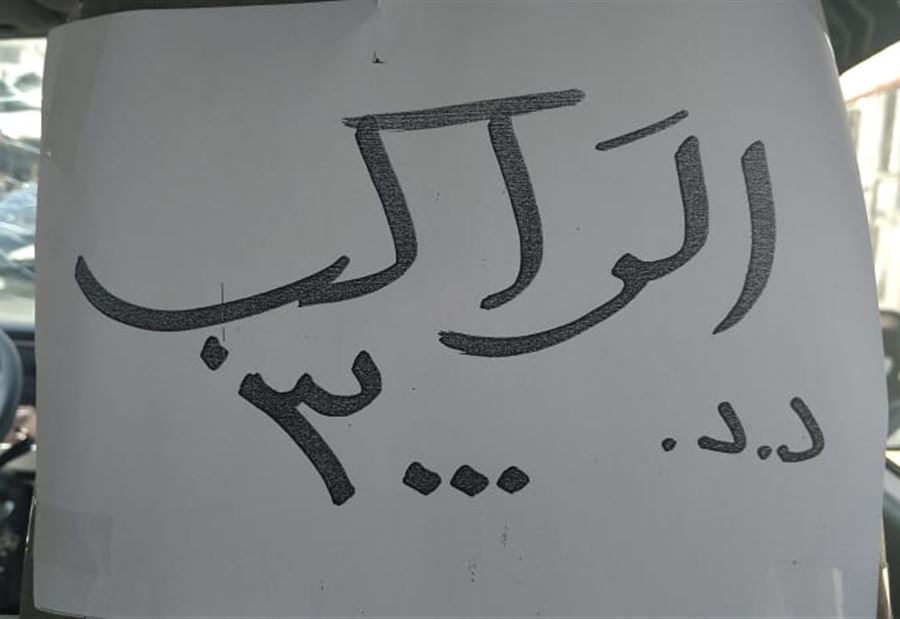 الراكب
٣٠٠٠ د.د.